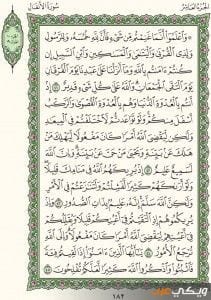 الجزء العاشر
سورة الأنفال
۞ وَٱعْلَمُوٓا۟ أَنَّمَا غَنِمْتُم مِّن شَىْءٍ فَأَنَّ لِلَّهِ خُمُسَهُۥ وَلِلرَّسُولِ
وَلِذِى ٱلْقُرْبَىٰ وَٱلْيَتَٰمَىٰ وَٱلْمَسَٰكِينِ وَٱبْنِ ٱلسَّبِيلِ إِن
كُنتُمْ ءَامَنتُم بِٱللَّهِ وَمَآ أَنزَلْنَا عَلَىٰ عَبْدِنَا يَوْمَ ٱلْفُرْقَانِ
يَوْمَ ٱلْتَقَى ٱلْجَمْعَانِ ۗ وَٱللَّهُ عَلَىٰ كُلِّ شَىْءٍ قَدِيرٌ ٤١ إِذْ
أَنتُم بِٱلْعُدْوَةِ ٱلدُّنْيَا وَهُم بِٱلْعُدْوَةِ ٱلْقُصْوَىٰ وَٱلرَّكْبُ
أَسْفَلَ مِنكُمْ ۚ وَلَوْ تَوَاعَدتُّمْ لَٱخْتَلَفْتُمْ فِى ٱلْمِيعَٰدِ ۙ
وَلَٰكِن لِّيَقْضِىَ ٱللَّهُ أَمْرًا كَانَ مَفْعُولًا لِّيَهْلِكَ مَنْ
هَلَكَ عَنۢ بَيِّنَةٍ وَيَحْيَىٰ مَنْ حَىَّ عَنۢ بَيِّنَةٍ ۗ وَإِنَّ ٱللَّهَ
لَسَمِيعٌ عَلِيمٌ ٤٢ إِذْ يُرِيكَهُمُ ٱللَّهُ فِى مَنَامِكَ قَلِيلًا ۖ
وَلَوْ أَرَىٰكَهُمْ كَثِيرًا لَّفَشِلْتُمْ وَلَتَنَٰزَعْتُمْ فِى ٱلْأَمْرِ
وَلَٰكِنَّ ٱللَّهَ سَلَّمَ ۗ إِنَّهُۥ عَلِيمٌۢ بِذَاتِ ٱلصُّدُورِ ٤٣ وَإِذْ
يُرِيكُمُوهُمْ إِذِ ٱلْتَقَيْتُمْ فِىٓ أَعْيُنِكُمْ قَلِيلًا وَيُقَلِّلُكُمْ
فِىٓ أَعْيُنِهِمْ لِيَقْضِىَ ٱللَّهُ أَمْرًا كَانَ مَفْعُولًا ۗ وَإِلَى ٱللَّهِ
تُرْجَعُ ٱلْأُمُورُ ٤٤ يَٰٓأَيُّهَا ٱلَّذِينَ ءَامَنُوٓا۟ إِذَا لَقِيتُمْ فِئَةً
فَٱثْبُتُوا۟ وَٱذْكُرُوا۟ ٱللَّهَ كَثِيرًا لَّعَلَّكُمْ تُفْلِحُونَ ٤٥
١٨٢
ويكي